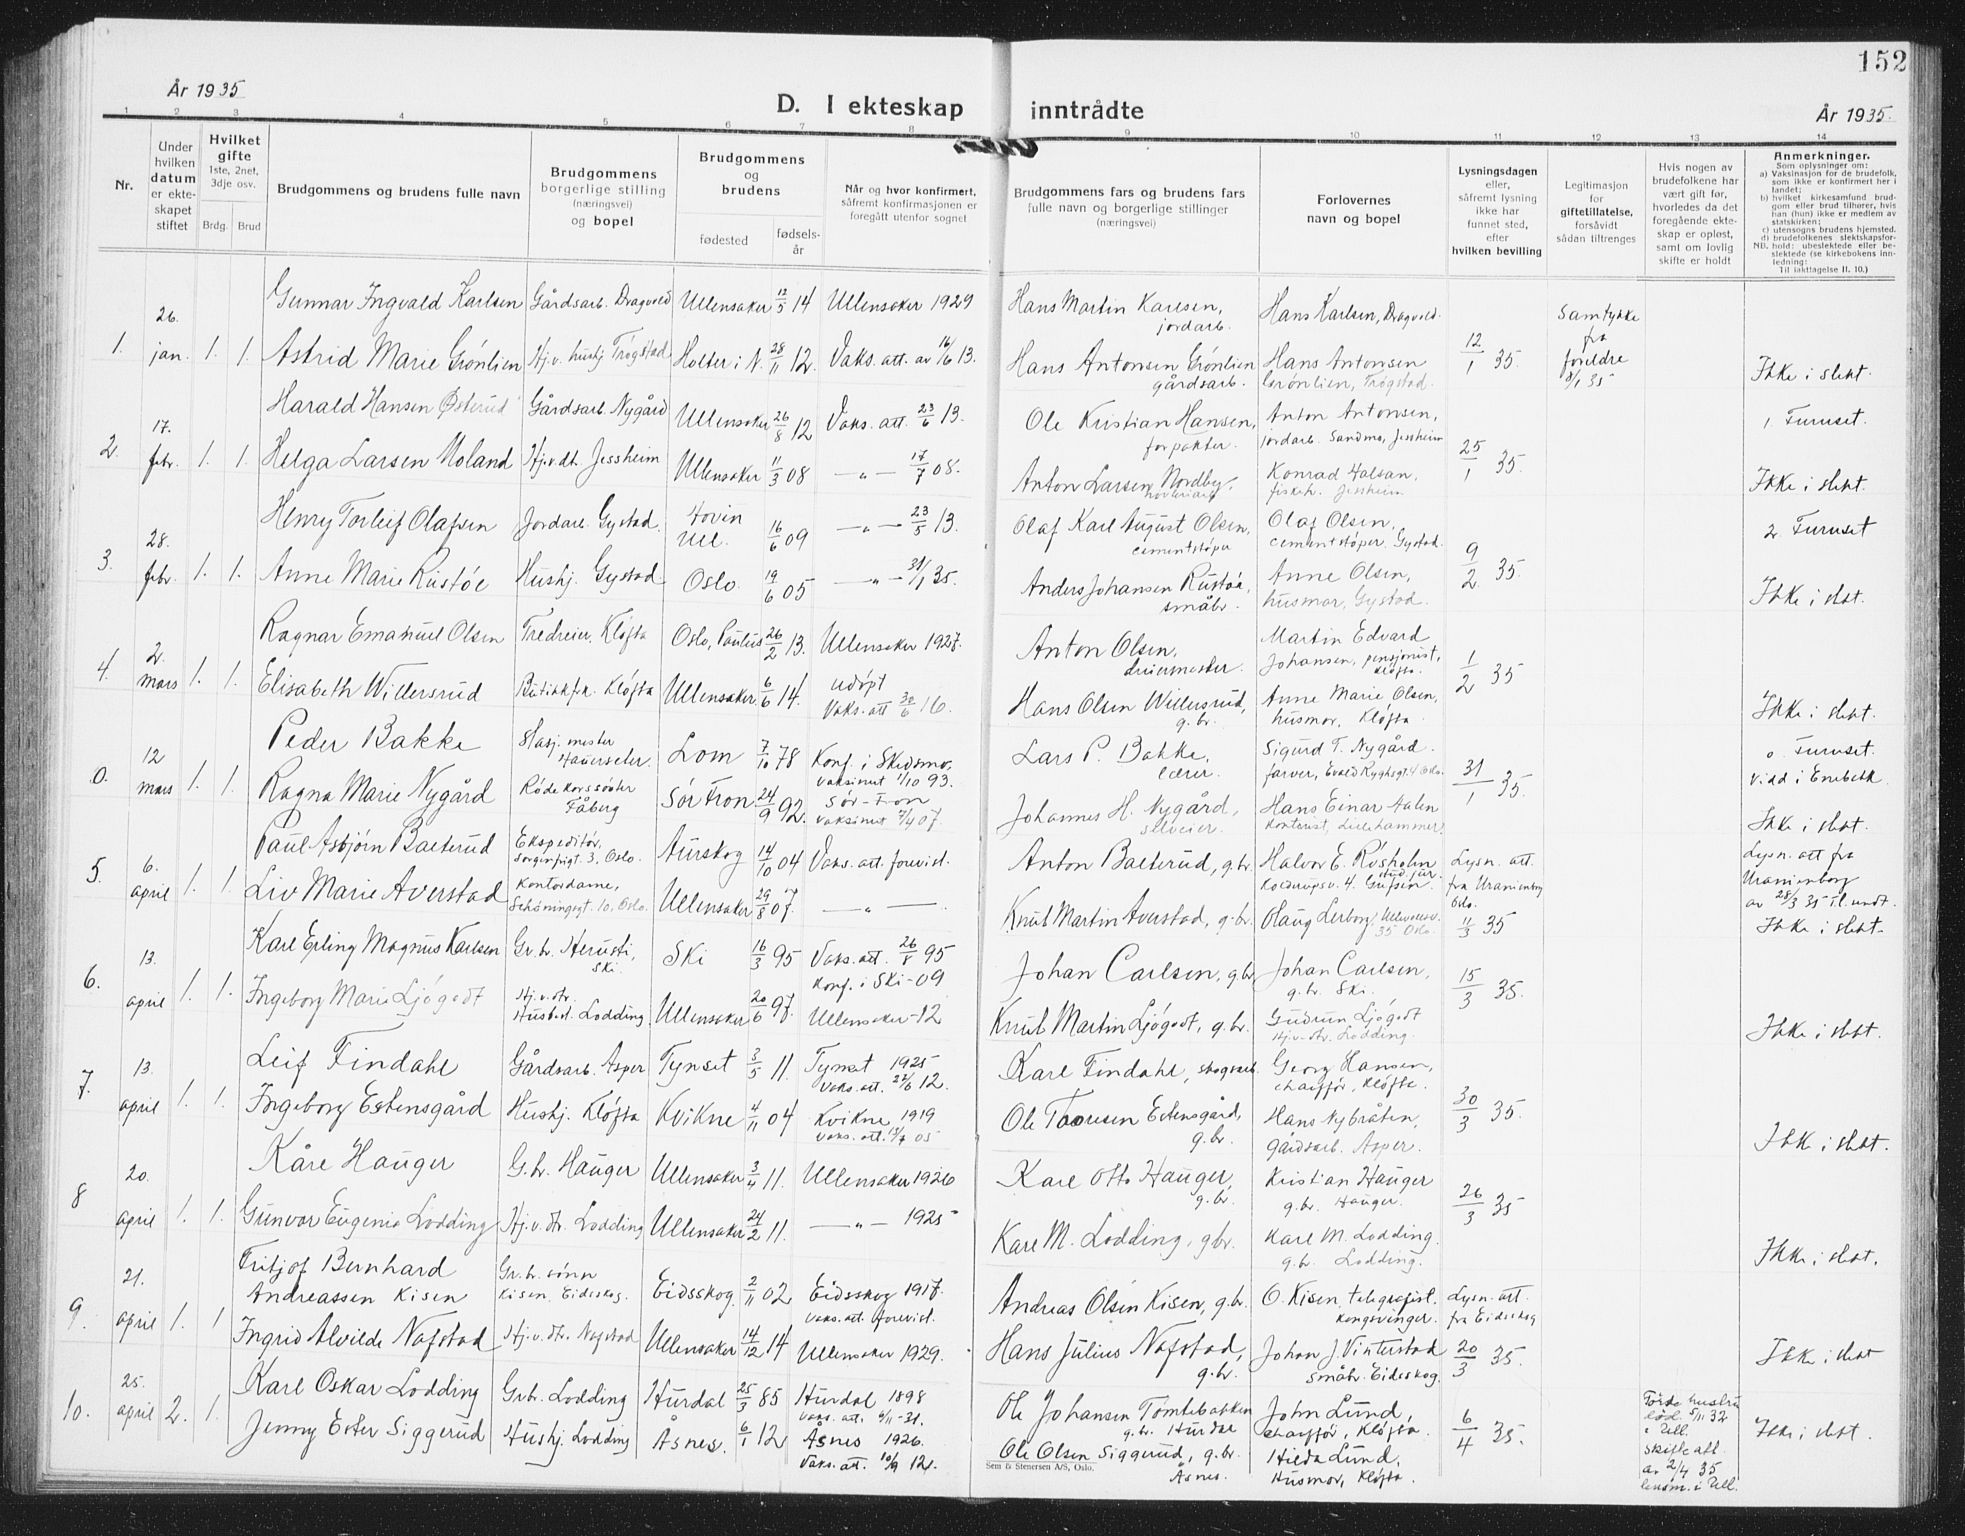 152
År 1935
D. I ekteskap inntrådte
År 1935.
1 2 3 4 5 6 7 8 9 10 11 12 13 14
Nr.
Under hvilken datum er ekteskapet stiftet
Hvilket gifte 1ste, 2net, 3dje osv.
Brdg. Brud
Brudgommens og brudens fulle navn
Brudgommens borgerlige stilling (næringsvei) og bopel
Brudgommens og brudens
fødested
fødselsår
Når og hvor konfirmert, såfremt konfirmasjonen er foregått utenfor sognet
Brudgommens fars og brudens fars fulle navn og borgerlige stillinger (næringsvei)
Forlovernes navn og bopel
Lysningsdagen eller, såfremt lysning ikke har funnet sted, efter hvilken bevilling
Legitimasjon for giftetillatelse, forsåvidt sådan tiltrenges
Hvis nogen av brudefolkene har vært gift før, hvorledes da det foregående ekteskap er opløst, samt om lovlig skifte er holdt
Anmerkninger.
Som oplysninger om:
a) Vaksinasjon for de brudefolk, som ikke er konfirmert her i landet;
b) hvilket kirkesamfund brudgom eller brud tilhører, hvis han (hun) ikke er medlem av statskirken;
c) utensogns brudens hjemsted.
d) brudefolkenes slektskapsforhold: ubeslektede eller beslektede (se kirkebokens innledning:
NB.
Til iakttagelse II. 10.)
1. 26. jan. 1. 1.
Gunnar Ingvald Karlsen Gårdsarb. Dragvold Ullensaker 12/5 14 Ullensaker 1929 Hans Martin Karlsen, jordarb. Hans Karlsen, Dragvold.
Astrid Marie Grönlien Hj.v. hushj Trøgstad Holter i N. 28/11 12. Vaks. att. av 16/16 13. Hans Antonsen Grönlien gårdsarb. Hans Antonsen Grönlien, Trøgstad. 12/1 35. Samtykke fra foreldre 8/1 35 Ikke i slekt.
2. 17. febr. 1. 1.
Harald Hansen Østerud Gårdsarb. Nygård Ullensaker 26/8 12 Vaks. att. 23/6 13. Ole Kristian Hansen, forpakter. Anton Antonsen, jordarb. Sandmo, Jessheim 1. Furuset.
Helga Larsen Moland Hj.v.dt. Jessheim Ullensaker 11/3 08 — „ — 17/7 08. Anton Larsen Nordby, Konrad Halsan, fiskeh. Jessheim 25/1 35. Ikke i slekt.
3. 28. febr. 1. 1.
Henry Torleif Olafsen Jordarb. Gystad. Hovin Ull. 16/6 09 — „ — 23/5 13. Olaf Karl August Olsen, cementstöper Olaf Olsen, cementstöper, Gystad. 2. Furuset
Anne Marie Rustöe Hushj. Gystad Oslo. 19/6 05 — „ — 31/1 35. Anders Johansen Rustöe, småbr. Anne Olsen, husmor, Gystad. 9/2 35. Ikke i slekt.
4. 2. mars 1. 1.
Ragnar Emanuel Olsen Tredreier, Kløfta Oslo, Paulus 26/2 13. Ullensaker 1927. Anton Olsen, dreiermester. Martin Edvard Johansen, pensjonist, Kløfta.
Elisabeth Willersrud Butikkfrk. Kløfta Ullensaker 6/6 14. udöpt Vaks. att 30/6 16. Hans Olsen Willersrud, g.br. Anne Marie Olsen, husmor, Kløfta. 1/2 35 Ikke i slekt.
0. 12 mars 1. 1.
Peder Bakke Hasj. mester Hauerseter. Lom 7/10 78 Konf. i Skedsmo. vaksinert 1/10 93. Lars P. Bakke, lærer. Sigurd T. Nygård. farver, Evald Ryghsgt. 4 Oslo. 0. Furuset. Vidd i Enebakk.
Ragna Marie Nygård Røde korssøster Fåberg Sör Fron 24/9 92. Sör-Fron vaksinert 7/4 07. Johannes H. Nygård, selveier. Hans Einar Aalen Kontorist, Lillehammer. 31/1 35. Ikke i slekt.
5. 6. april 1. 1.
Paul Asbjörn Baeterud Ekspeditör, Sorgenfrigt. 3, Oslo. Aurskog 14/10 04 Vaks. att. forevist. Anton Baeterud, g.br. Halvor E. Rösholm stud. jur. Kolderupsv. 4. Grefsen. Lysn. att. fra Uranienborg Oslo. Lysn. att fra Uranienborg av 28/3 35 til undt.
Liv Marie Averstad Kontordame, Schöningsgt. 10, Oslo. Ullensaker 29/8 07. — „ — Knut Martin Averstad, g.br. Olaug Lerborg, Ullevålsv. 35 Oslo. 11/3 35 Ikke i slekt.
6. 13. april 1. 1.
Karl Erling Magnus Karlsen Gr.br. Herusti, Ski. Ski 16/3 95 Vaks. att. 26/8 95 Konf. i Ski-09 Johan Carlsen, g.br Johan Carlsen, g.br. Ski.
Ingeborg Marie Ljögodt Hj.v.dtr. Husbst. Lodding. Ullensaker 20/6 97. Ullensaker-12 Knut Martin Ljögodt, g.br. Gudrun Ljögodt Hj.v.dtr. Lodding. 15/3 35. Ikke i slekt.
7. 13. april 1. 1.
Leif Findahl Gårdsarb. Asper Tynset 3/5 11. Tynset 1925 Vaks. att. 22/6 12. Karl Findahl, skogsarb. Georg Hansen, chaufför, Kløfta.
Ingeborg Estensgård Hushj. Kløfta Kvikne 4/11 04 Kvikne 1919 Vaks. att. 13/7 05 Ole Thoresen Estensgård, g.br. Hans Nybråten, gårdsarb. Asper. 30/3 35. Ikke i slekt.
8 20. april 1. 1.
Kåre Hauger G.br. Hauger Ullensaker 3/4 11. Ullensaker 1926 Karl Otto Hauger, g.br. Kristian Hauger g.br. Hauger.
Gunvor Eugenie Lodding Hj.v.dtr. Lodding Ullensaker 24/2 11. — „ — 1925 Karl M. Lodding, gbr. Karl M. Lodding. g.br. Lodding. 26/3 35 Ikke i slekt.
9. 21. april 1. 1.
Fritjof Bernhard Andreassen Kisen Gr.br. sönn Kisen, Eidsskog. Eidsskog 2/11 02 Eidsskog 1917. Vaks. att. forevist. Andreas Olsen Kisen, g.br. O. Kisen, telegrafist. Kongsvinger. Lysn. att. fra Eidsskog
Ingrid Alvilde Nafstad Hj.v.dtr. Nafstad Ullensaker 14/12 14 Ullensaker 1929. Hans Julius Nafstad, g.br. Johan J. Vinterstad Småbr. Eidsskog. 20/3 35. Ikke i slekt
10. 25. april 2. 1.
Karl Oskar Lodding Gr.br. Lodding Hurdal 25/3 85 Hurdal 1898 Vaks. att. 9/11-21. Ole Johansen Tömtebakken g.br. Hurdal John Lund, chaufför, Kløfta. Förste hustru död 5/11 32 i Ull. Skifte att. av 2/4 35 lensm. i Ull.
Jenny Ester Siggerud Hushj. Lodding Åsnes. 6/1 12 Åsnes 1926. Vaks. att. 10/9 12. Ole Olsen Siggerud, g.br. Åsnes. Hilda Lund, Husmor, Kløfta. 6/4 35. Ikke i slekt.
Sem & Stenersen A/S, Oslo.